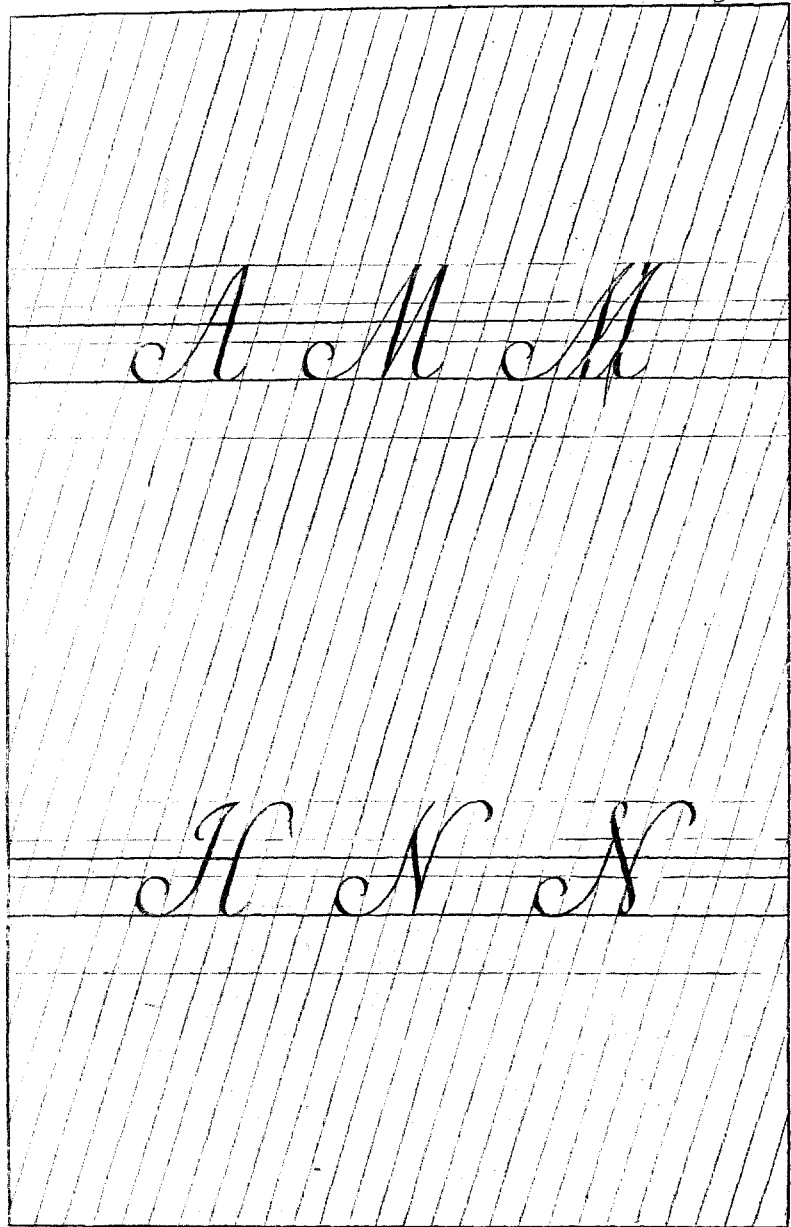 A M M
H N N